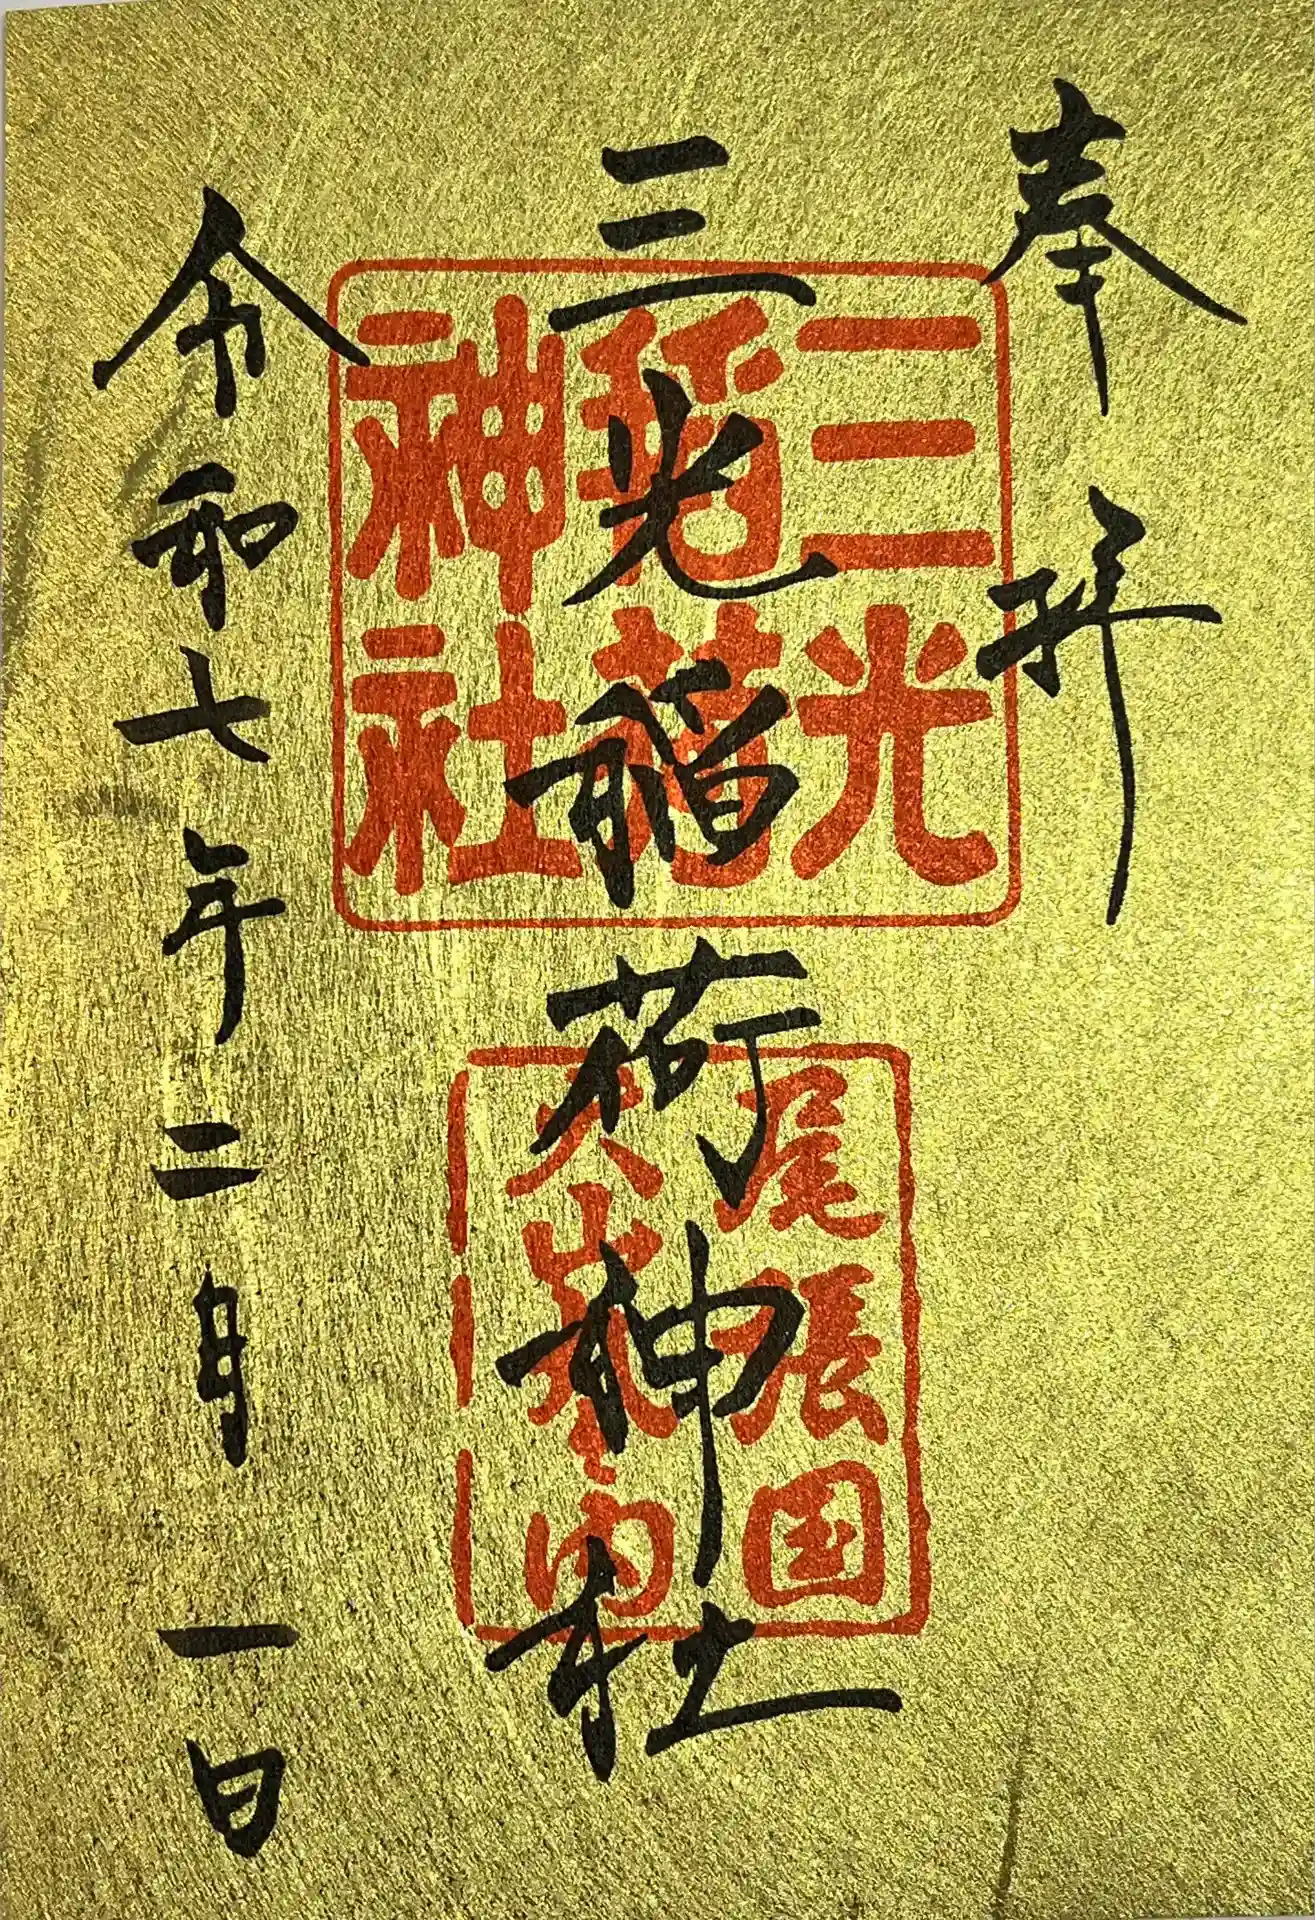 奉拝
三光稲荷神社
令和七年二月一日
三光
稲荷
神社
尾張国
犬山
内